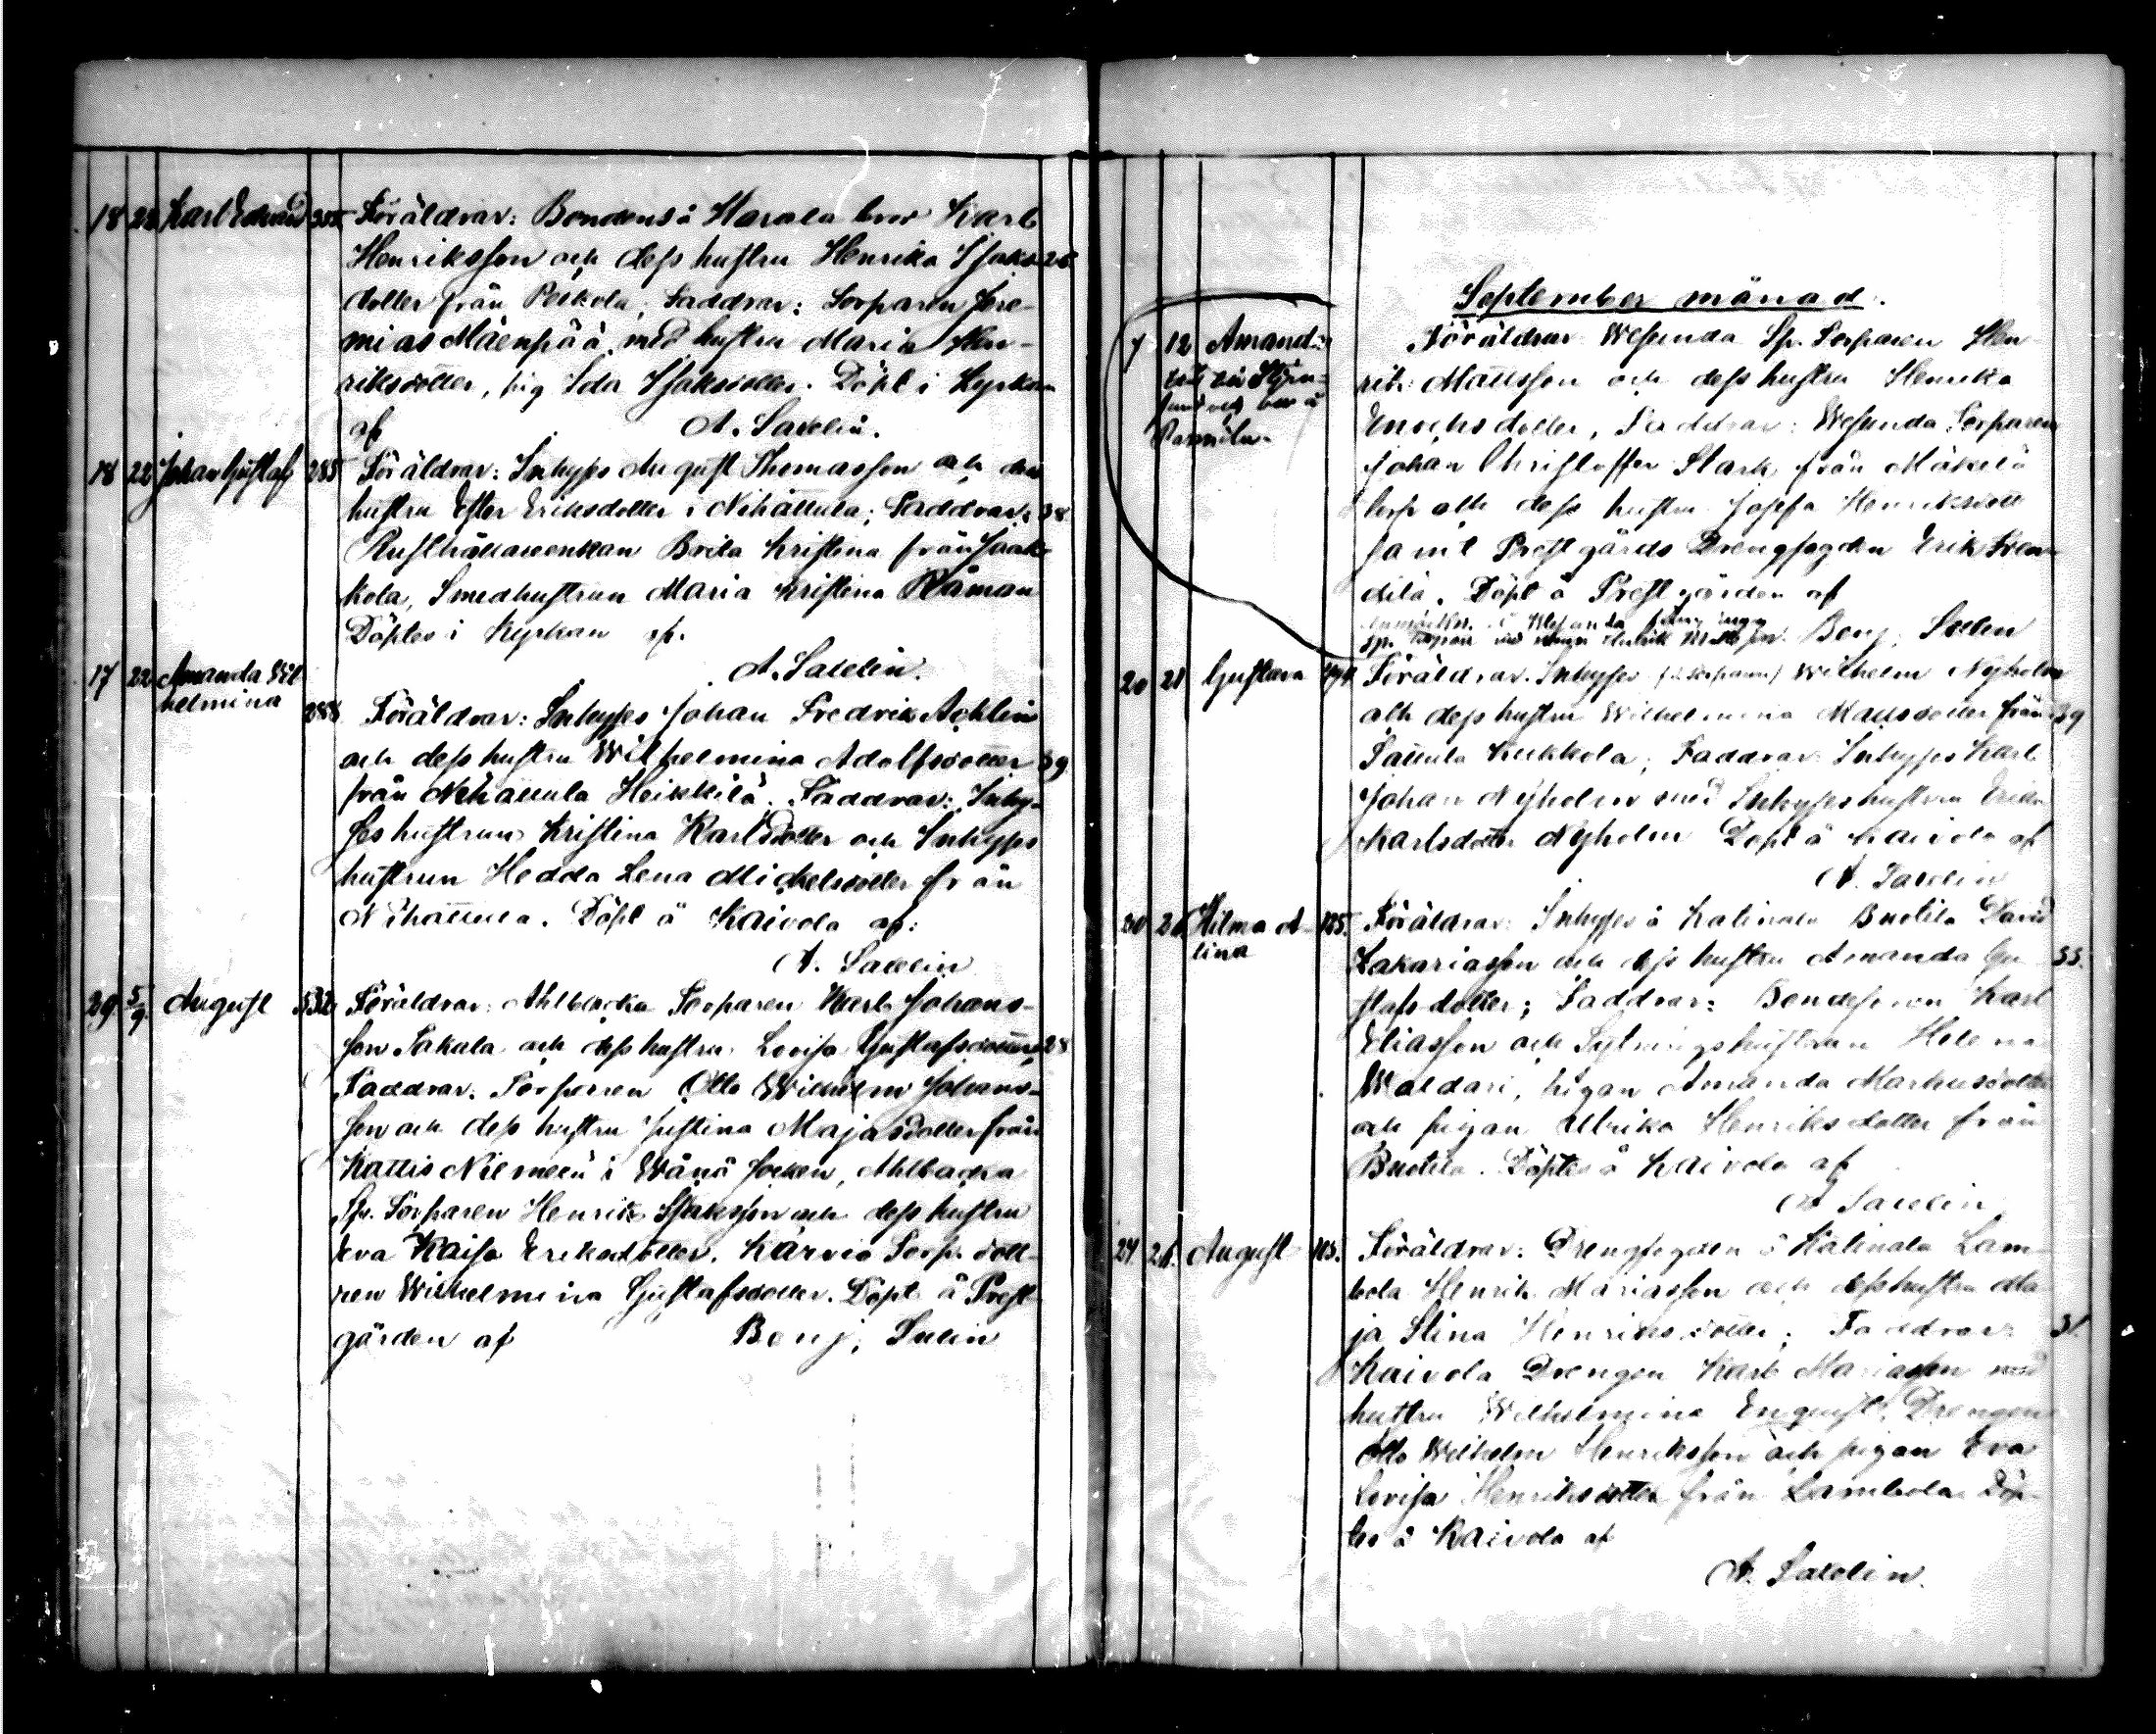 18 22 Karl Edvard 355 Föräldrar: Bondens å Harala bror Karl
Henriksson och dess hustru Henrika Isaks- 26
dotter från Peikola; Faddrar: Torparen Jere-
mias Mäenpää med hustru Maria Hen-
riksdotter, pig Ida Isaksdotter. Döpt i Kyrkan
af A. Saxelin.
18 22 Johan Gustaf 285 Föräldrar: Inhyses August Thomasson och dess
hustru Ester Eriksdotter i Nihattula; Faddrar: 38
Rusthållareenkan Brita Kristina från Jaak-
kola, Smedhustrun Maria Kristina Råman
Döptes i Kyrkan af.
A. Saxelin.
17 22 Amanda Wil-
helmina
288 Föräldrar: Inhyses Johan Fredrik Achlin
och dess hustru Wilhelmina Adolfsdotter 39
från Nihattula Heikkilä. Faddrar: Inhy-
ses hustrun Kristina Karlsdotter och Inhyses
hustrun Hedda Lena Michelsdotter från
Nihattula. Döpt å Kaivola af:
A. Saxelin
29 5/9. August 532 Föräldrar: Ahlbacka Torparen Karl Johans-
son Takala och dess hustru Lovisa Gustafsdotter, 28
Faddrar. Torparen Otto Wilhelm Johans-
son och dess hustru Justina Majasdotter från
Kattis Niemelä i Wånå socken, Ahlbacka
Sp. Torparen Henrik Isaksson och dess hustru
Eva Kaisa Eriksdotter. Kärviä Torp. dott-
ren Wilhelmina Gustafsdotter. Döpt å Prest-
gården af Benj. Salin
September månad.
7 12 Amanda
Föräldrar Wesunda Sp. Torparen Hen-
rik Mattsson och dess hustru Henrika
Enochsdotter, Faddrar: Wesunda Torparen
Johan Christoffer Stark från Mäkelä
torp och dess hustru Josefa Henriksdott
samt Prestgårds Drengfogden Erik
Döpt å Prestgården af
Benj. Salin
20 21 Gustava Föräldrar. Inhyses Wilhelm Nyholm
och dess hustru Wilhelmina Mattsdotter från 39
Sattula Kukkola; Faddrar Inhyses Karl
Johan Nyholm med Inhyses hustrun Erika
Karlsdotter Nyholm Döpt å Kaivola af
A. Saxelin
20 26 Hilma A-
lina
105. Föräldrar: Inhyses å Katinala Buotila David
Zakariasson och dess hustru Amanda Gu- 33.
stafsdotter; Faddrar: Bondeson Karl
Eliasson och Sytningshustrun Helena
Waldari, pigan Amanda Markusdotter
och pigan Ulrika Henriksdotter från
Buotila. Döptes å Kaivola af
A Saxelin
24 26. August 103. Föräldrar: Drengfogden å Katinala Lam-
bola Henrik Mariasson och dess hustru Ma-
ja Stina Henriksdotter; Faddrar: 31
Kaivola Drengen Karl Mariasson med
hustru Wilhelmina Enquist, Drengen
Otto Wilhelm Henriksson och pigan Eva
Lovisa Henriksdotter från Lambola Döp-
tes å Kaivola af
A. Saxelin.